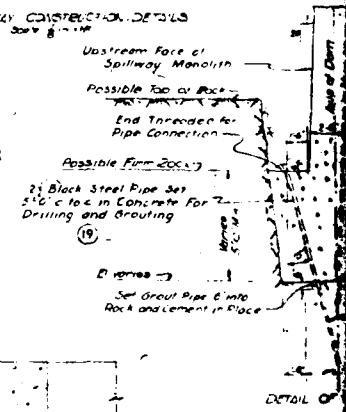 CONSTRUCTION DETAILS
Upstream Face of
Spillway Monolith
Axis of Dam
Possible Top of Rock
End Threaded for
Pipe Connection
Possible Firm Rock
Black Steel Pipe Set
5'-0" c to c in Concrete For
Drilling and Grouting
19
Varies
El varies
Set Grout Pipe 6" into
Rock and Cement in Place
DETAIL OF